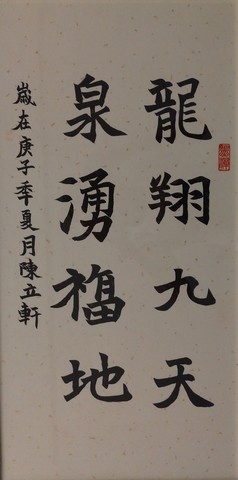 龍翔九天
泉湧福地
歲在庚子季夏月陳立軒